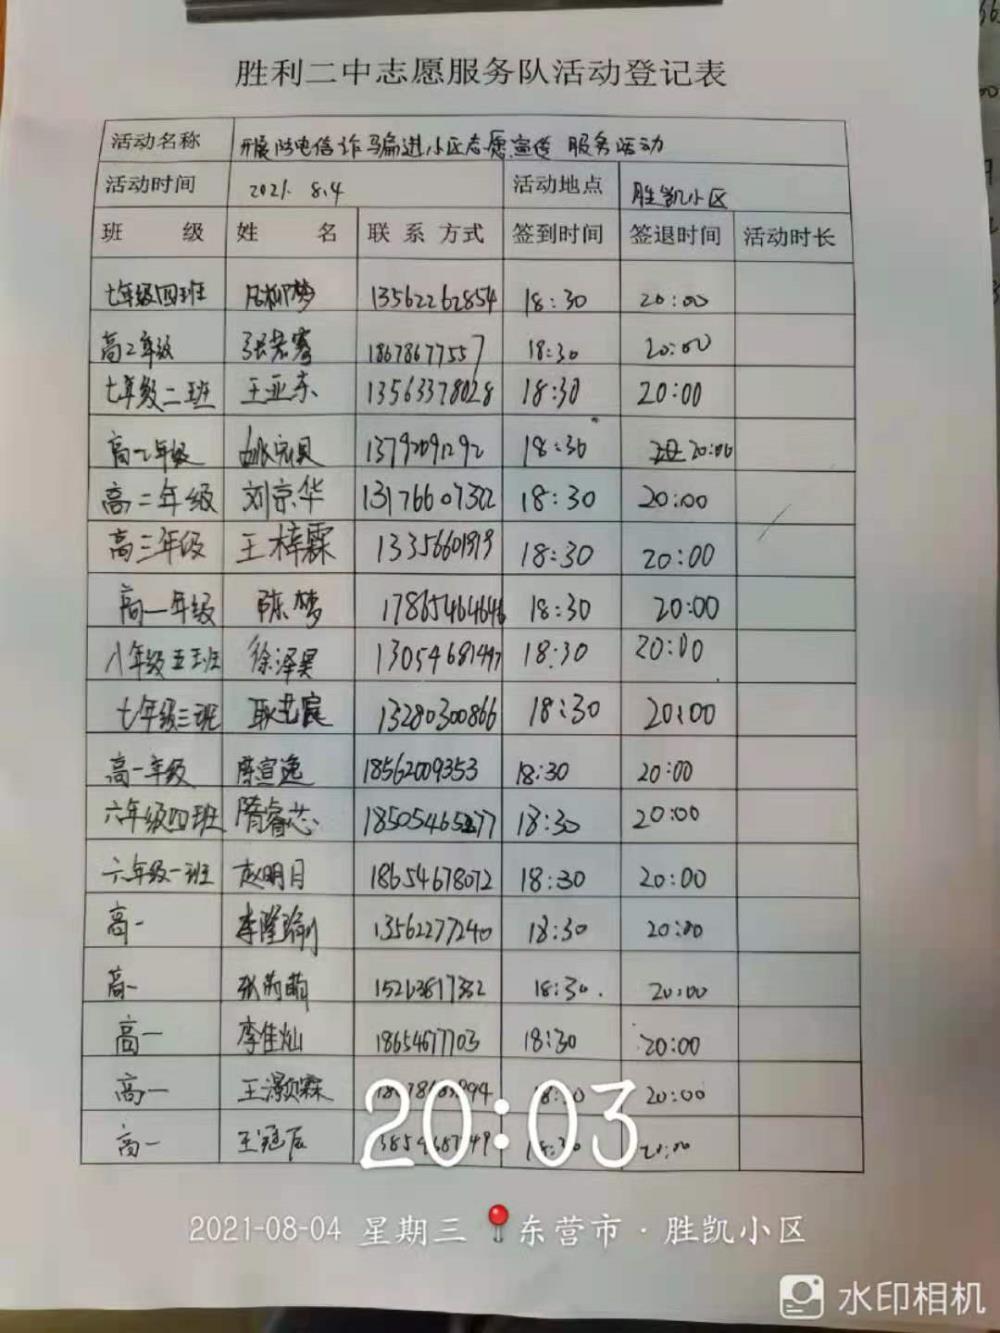 胜利二中志愿服务队活动登记表
活动名称 开展防电信诈骗进小区志愿宣传 服务活动
活动时间 2021. 8.4 活动地点 胜凯小区
班 级 姓 名 联 系 方式 签到时间 签退时间 活动时长
七年级四班 13562262854 18:30 20:00
高二年级 张若骞 18678677557 18:30 20:00
七年级二班 王亚东 13563378028 18:30 20:00
高二年级 13792091292 18:30 20:00
高二年级 刘京华 13176607322 18:30 20:00
高三年级 王梓霖 13356601979 18:30 20:00
高一年级 陈梦 17865464646 18:30 20:00
八年级五班 徐泽昊 13054681497 18:30 20:00
七年级三班 耿艺宸 13280300866 18:30 20:00
高一年级 18562009353 18:30 20:00
六年级四班 隋睿芯 18:30 20:00
六年级一班 赵明月 18654678072 18:30 20:00
高一 李隆瑜 13562277240 18:30 20:00
高一 张萌萌 18:30. 20:00
高一 李佳灿 18654677703 18:30 20:00
高一 王灏霖 20:00
高一 王冠辰 20:00
20:03
2021-08-04 星期三 东营市·胜凯小区
水印相机